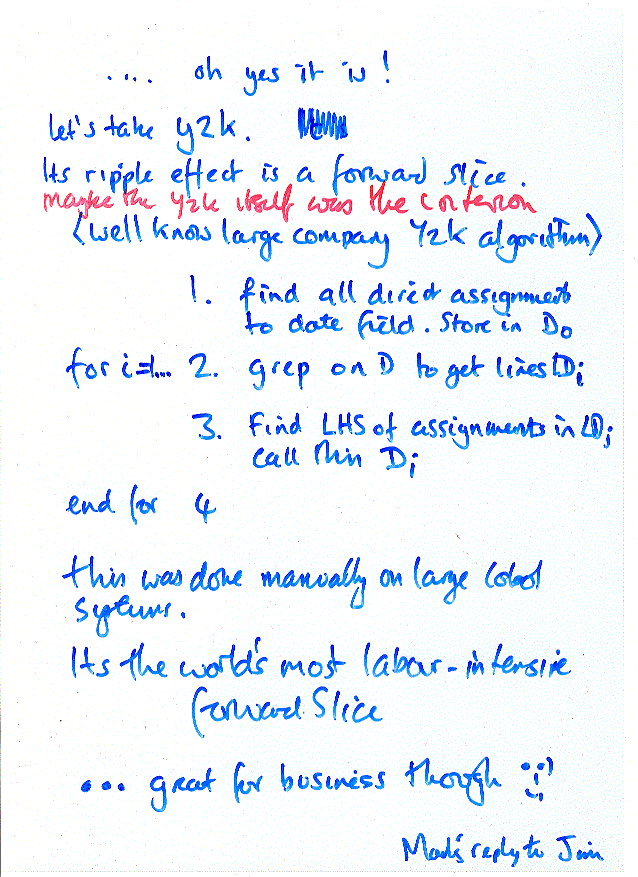 .... oh yes it is!
let's take y2k.
Its ripple effect is a forward slice.
maybe the y2k itself was the criterion
(well know large company Y2k algorithm)
1. find all direct assignment
to date field. Store in D0
for i=1... 2. grep on D to get lines LDi
3. Find LHS of assignments in LDi
call this Di
end for 4
this was done manually on large Cobol
systems.
Its the world's most labour-intensive
forward Slice
... great for business though :-)
Mark's reply to Jim